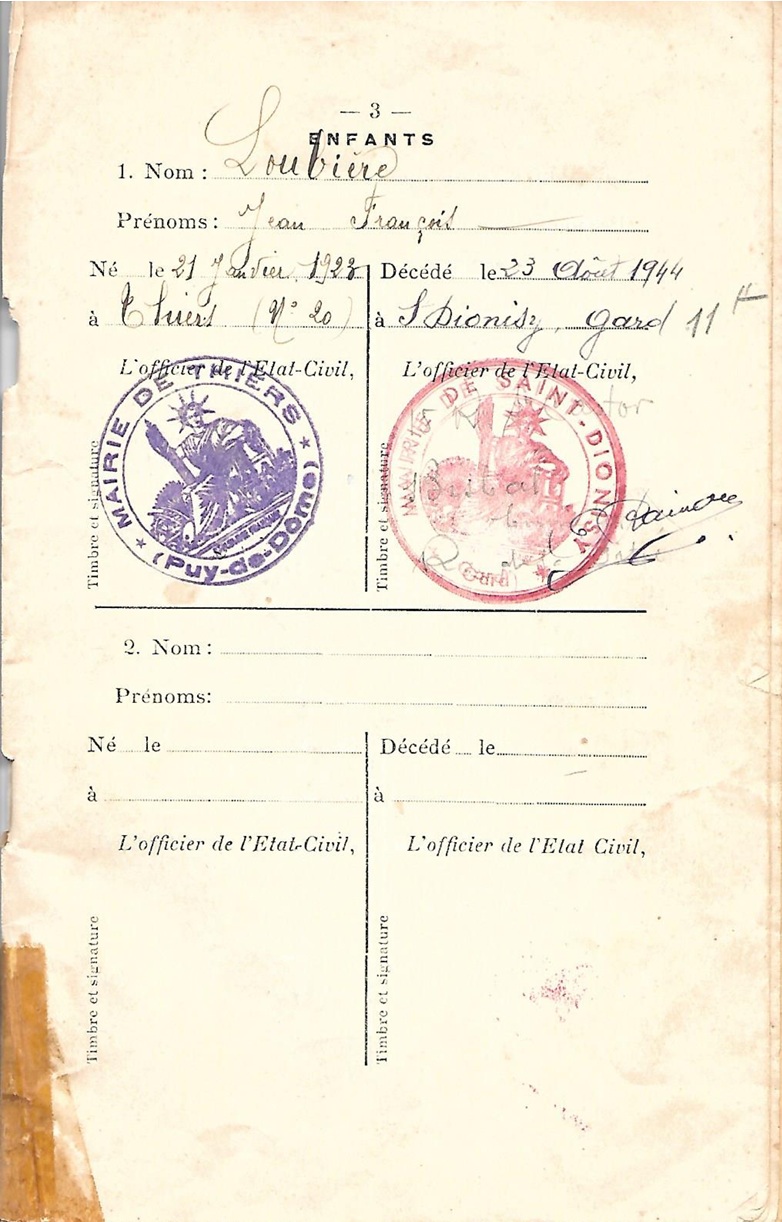 — 3 —
ENFANTS
1. Nom : Loubière
Prénoms : Jean François
Né le 21 Janvier 1923
à Thiers (N° 20)
L'officier de l'Etat-Civil,
Timbre et signature
MAIRIE DE THIERS
(Puy-de-Dôme)
Décédé le 23 Août 1944
à S Dionisy, Gard 11 H
L'officier de l'Etat-Civil,
Timbre et signature
MAIRIE DE SAINT-DIONISY
(Gard)
2. Nom :
Prénoms:
Né le
à
L'officier de l'Etat-Civil,
Timbre et signature
Décédé le
à
L'officier de l'Etat Civil,
Timbre et signature